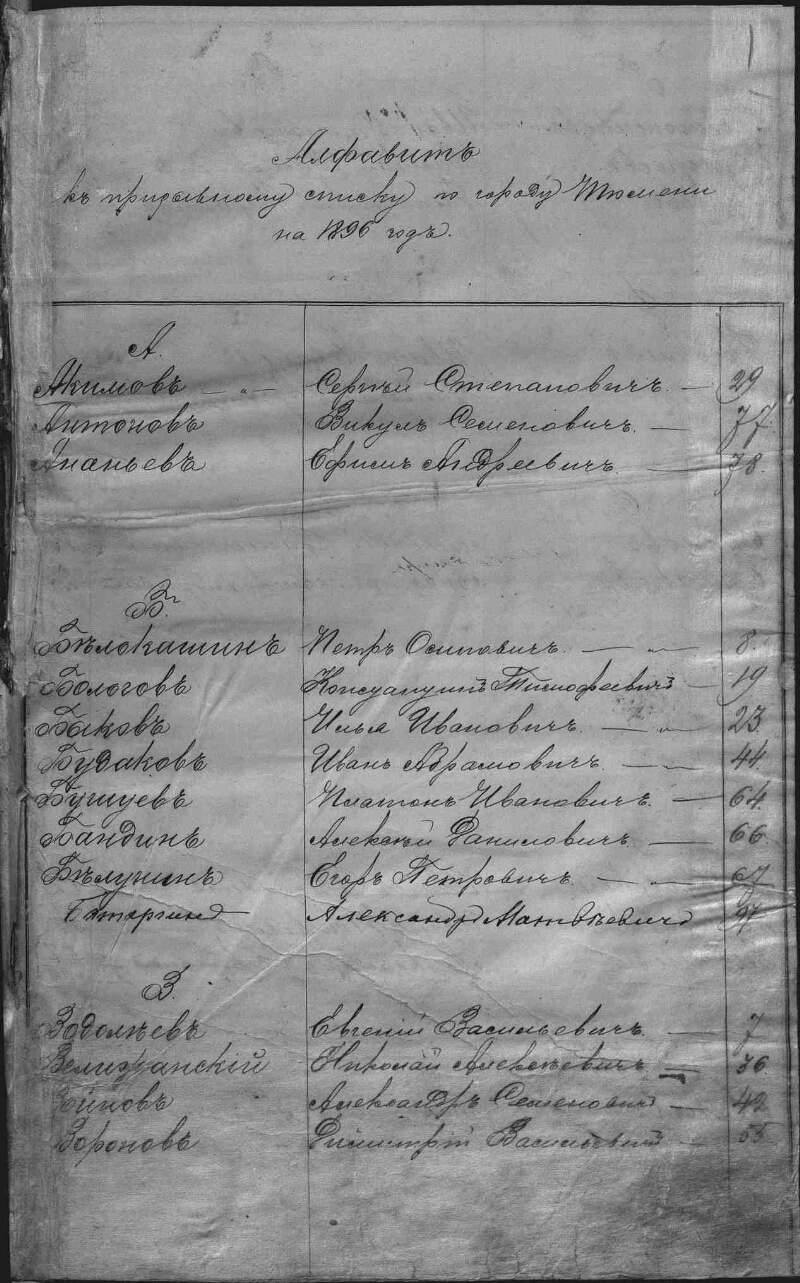 1
Алфавитъ
къ призывному списку по городу Тюмени
на 1896 годъ.
А.
Акимовъ — „ — Сергѣй Степановичъ. — 29
Антоновъ Викулъ Семеновичъ. — 77.
Ананьевъ Ефимъ Андреевичъ. — 78.
Б.
Бѣлокашинъ Петръ Осиповичъ. — „ — 8.
Бологовъ Тимофеевичъ — 19
Быковъ Илья Ивановичъ. — „ — 23.
Будаковъ Иванъ Абрамовичъ. — „ — 44.
Бушуевъ Платонъ Ивановичъ. — 64.
Бандинъ Алексѣй Даниловичъ. — 66.
Бѣлунинъ Егоръ Петровичъ. — „ — 67
Батаргинъ Александръ Матвѣевичъ 97
В.
Водолѣевъ Евгеній Васильевичъ. — 7
Велижанскій Николай Алексѣевичъ. — 36
Войновъ Александръ Семеновичъ — 42
Вороновъ Димитрій Васильевичъ — 55